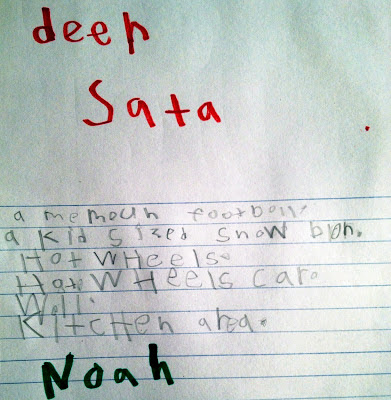 deeh
Sata
a memouh football.
a kid sized snow blon.
Hot WHeels.
Hot WHeels car.
Wall.
KitcHen area.
Noah